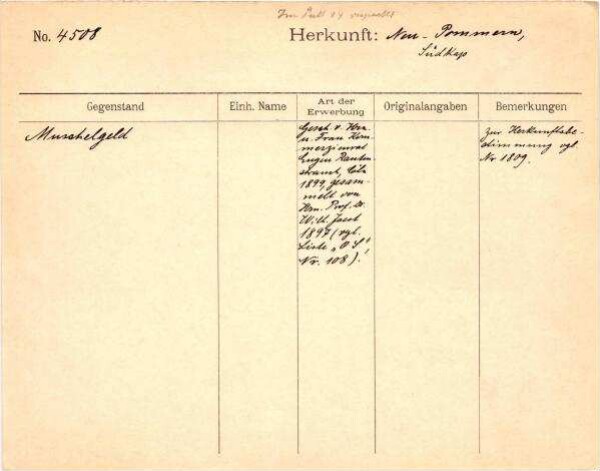 Im Pult 14
No. 4508
Herkunft: Neu-Pommern,
Südkap
Gegenstand
Einh. Name
Art der
Erwerbung
Originalangaben
Bemerkungen
Muschelgeld
Gesch. v. Hrn.
u. Frau Kom-
merzienrat
Eugen Rauten-
strauch, Cöln
1899, gesam-
melt von
Hrn. Prof. Dr.
1897 (vgl.
Liste „O S"
Nr. 108).
Zur Herkunftsbe-
stimmung vgl.
Nr 1809.